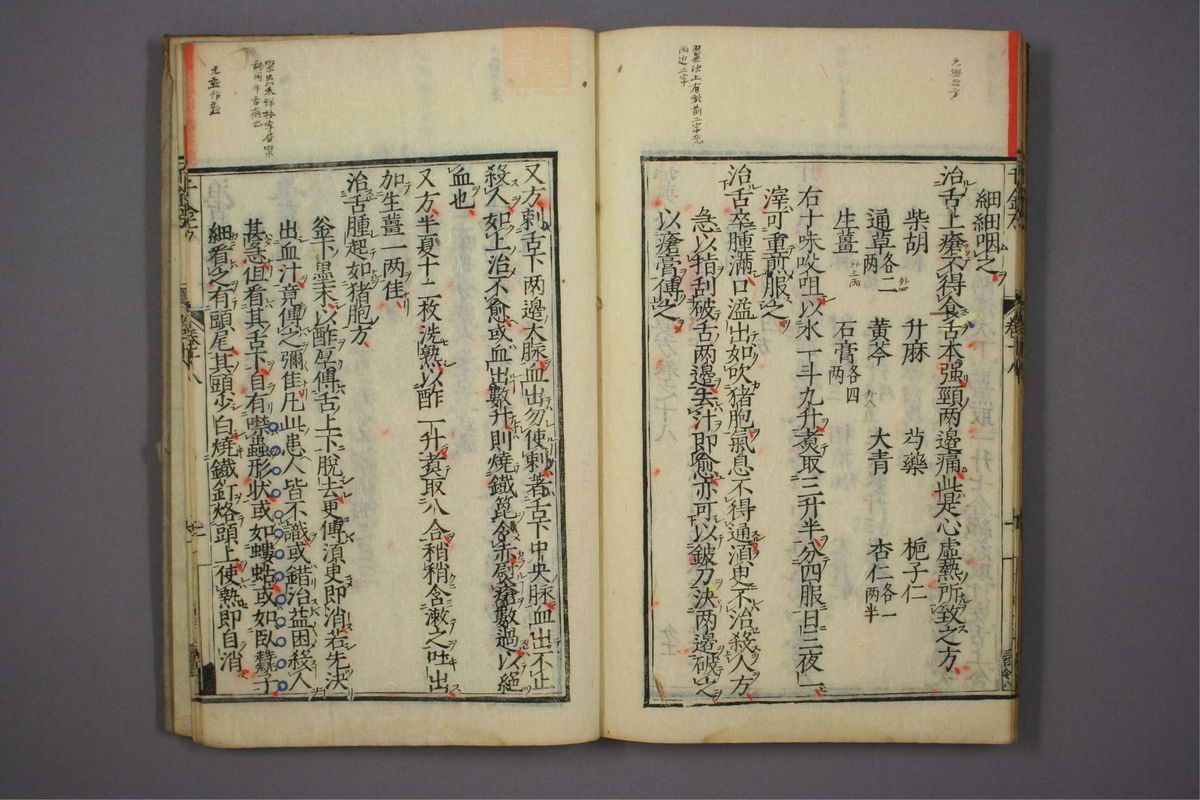 細細咽之
治舌上瘡不得食舌本强頸兩邊痛此是心虛熱所致之方
柴胡 升麻 芍藥 梔子仁
通草各二兩 黃芩 大青 杏仁各一兩半
生薑 石膏各四兩
右十味㕮咀以水一斗九升煑取三升半分四服日三夜一
滓可重煎服之
治舌卒腫滿口溢出如吹猪胞氣息不得通湏臾不治殺人方
急以指刮破舌兩邊去汁即愈亦可以鈹刀決兩邊破之
以瘡膏傅之
又方刺舌下兩邊大脉血出勿使刺著舌下中央脉血出不止
殺人如上治不愈或血出數升則燒鐵篦令赤熨瘡數過以絕
血也
又方半夏十二枚洗熟以酢一升煑取八合稍稍含漱之吐出
加生薑一兩佳
治舌腫起如猪胞方
釜下墨末以酢厚傅舌上下脫去更傅湏臾即消若先決
出血汁竟傅之彌佳凡此患人皆不識或錯治益困殺人
甚急但看其舌下自有噤蟲形狀或如螻蛄或如臥蠶子
細看之有頭尾其頭少白燒鐵釘烙頭上使熟即自消